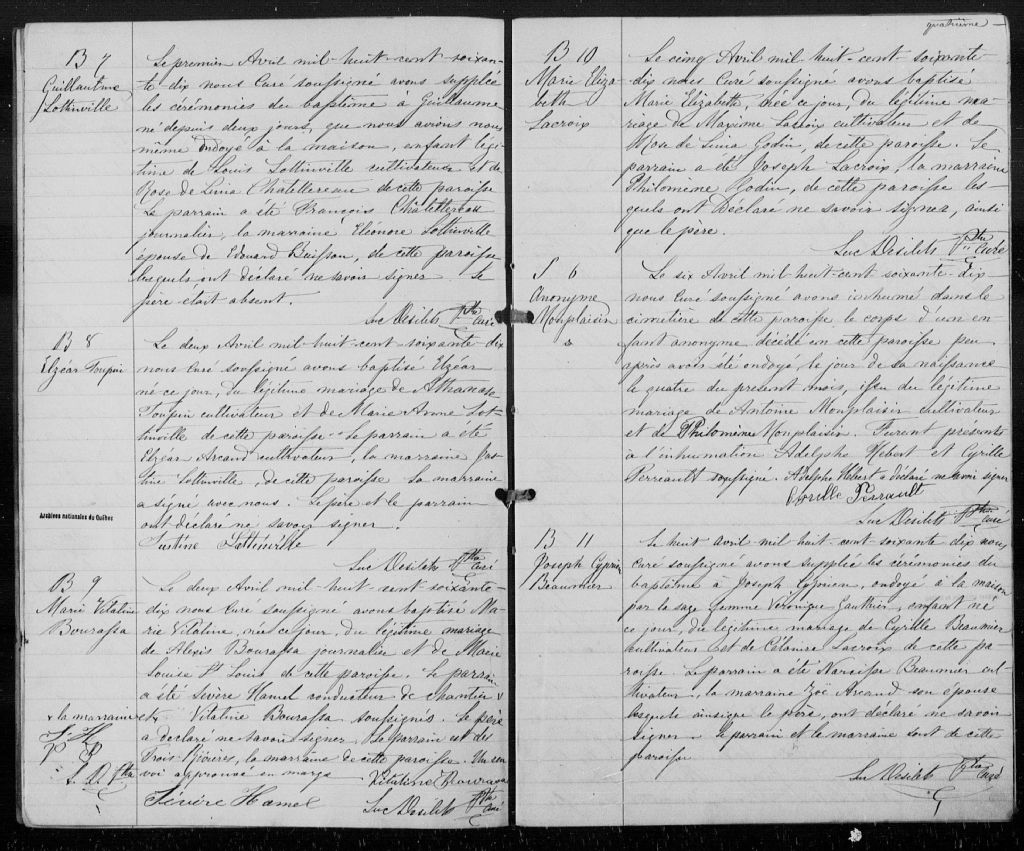 B 7
Guillaume
Lottinville
Le premier Avril mil-huit-cent soixan-
te-dix nous Curé soussigné avons supplée
les cérémonies du baptême à Guillaume
né depuis deux jours, que nous avions nous
même ondoyé à la maison, enfant légi-
time de Louis Lottinville cultivateur et de
Rose de Lima Chatettereau de cette paroisse
Le parrain a été François Chatettereau
journalier, la marraine Eléonore Lottinville
épouse de Edouard Buisson, de cette paroisse
lesquels ont déclaré ne savoir signer Le
père était absent.
Luc Desilets Ptre Curé
B 8
Elzéar Toupin
Le deux Avril mil-huit-cent soixante-dix
nous Curé soussigné avons baptisé Elzéar
né ce jour, du légitime mariage de Athanase
Toupin cultivateur et de Marie Anne Lot-
tinville de cette paroisse - Le parrain a été
Elzéar Arcand cultivateur, la marraine Jus-
tine Lottinville, de cette paroisse La marraine
a signé avec nous. Le père et le parrain
ont déclaré ne savoir signer.
Justine Lottinville
Luc Desilets Ptre Curé
Archives nationales du Québec
B 9
Marie Vitaline
Bourassa
Le deux Avril mil-huit-cent-soixante-
dix nous Curé soussigné avons baptisé Ma-
rie Vitaline, née ce jour, du légitime mariage
de Alexis Bourassa journalier et de Marie
Louise St Louis de cette paroisse. Le parrain
a été Sévère Hamel conducteur de chantier x
x la marraine
et Vitaline Bourassa soussignés. Le père
a déclaré ne savoir signer Le parrain est des
Trois-Rivières, la marraine de cette paroisse. Un ren
voi approuvé en marge
L. D. Ptre
Vitaline Bourassa
Sévère Hamel
Luc Desilets Ptre Curé
quatrième
B 10
Marie Eliza-
beth
Lacroix
Le cinq Avril mil-huit-cent-soixante
dix nous Curé soussigné avons baptisé
Marie Elizabeth, née ce jour, du légitime ma-
riage de Maxime Lacroix cultivateur et de
Rose de Lima Godin, de cette paroisse. Le
parrain a été Joseph Lacroix, la marraine
Philomène Godin, de cette paroisse les-
quels ont déclaré ne savoir signer, ainsi
que le père.
Luc Desilets Ptre Curé
S 6
Anonyme
Monplaisir
Le six Avril mil huit-cent soixante-dix
nous Curé soussigné avons inhumé dans le
cimetière de cette paroisse le corps d'un en-
fant anonyme décédé en cette paroisse peu
après avoir été ondoyé, le jour de sa naissance
le quatre du présent mois, issu du légitime
mariage de Antoine Monplaisir cultivateur
et de Philomène Monplaisir. Furent présents
à l'inhumation Adelphe Hébert et Cyrille
Perreault soussigné. Adelphe Hébert a déclaré ne savoir signer
Cyrille Perrault
Luc Desilets Ptre Curé
B 11
Joseph Cyprien
Beaumier
Le huit Avril mil huit-cent-soixante dix nous
Curé soussigné avons supplée les cérémonies du
baptême à Joseph Cyprien, ondoyé à la maison
par la sage femme Véronique Gauthier, enfant né
ce jour, du légitime mariage de Cyrille Beaumier
cultivateur et de Célanire Lacroix de cette pa-
roisse. Le parrain a été Narcisse Beaumier cul-
tivateur, la marraine Zoë Arcand son épouse
lesquels ainsi que le père, ont déclaré ne savoir
signer. Le parrain et la marraine sont de cette
paroisse.
Luc Desilets Ptre Curé